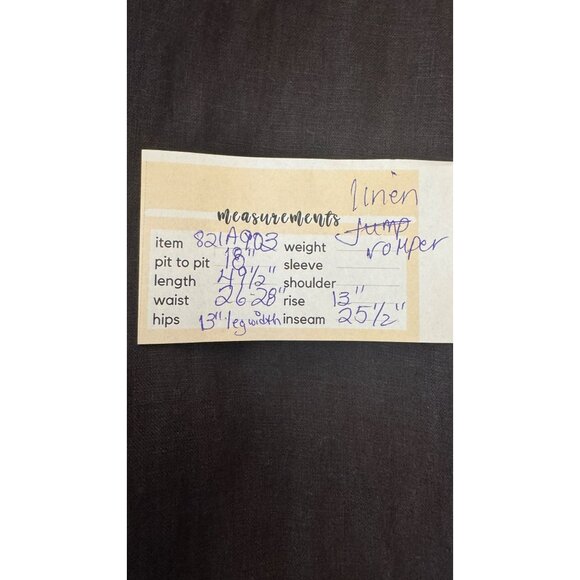 linen
measurements jump
romper
item 821A903 weight
pit to pit 18" sleeve
length 49 1/2" shoulder
waist 26-28" rise 13"
hips 13" leg width inseam 25 1/2"